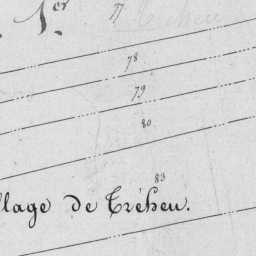 1er 77
78
79
80
83
llage de Tréheu.